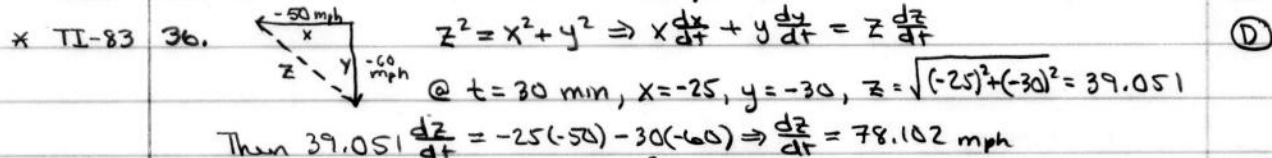 * TI-83 36. -50 mph z² = x² + y² ⇒ x dx/dt + y dy/dt = z dz/dt D
x
z y -60 mph
@ t = 30 min, x = -25, y = -30, z = √((-25)² + (-30)²) = 39.051
Then 39.051 dz/dt = -25(-50) - 30(-60) ⇒ dz/dt = 78.102 mph